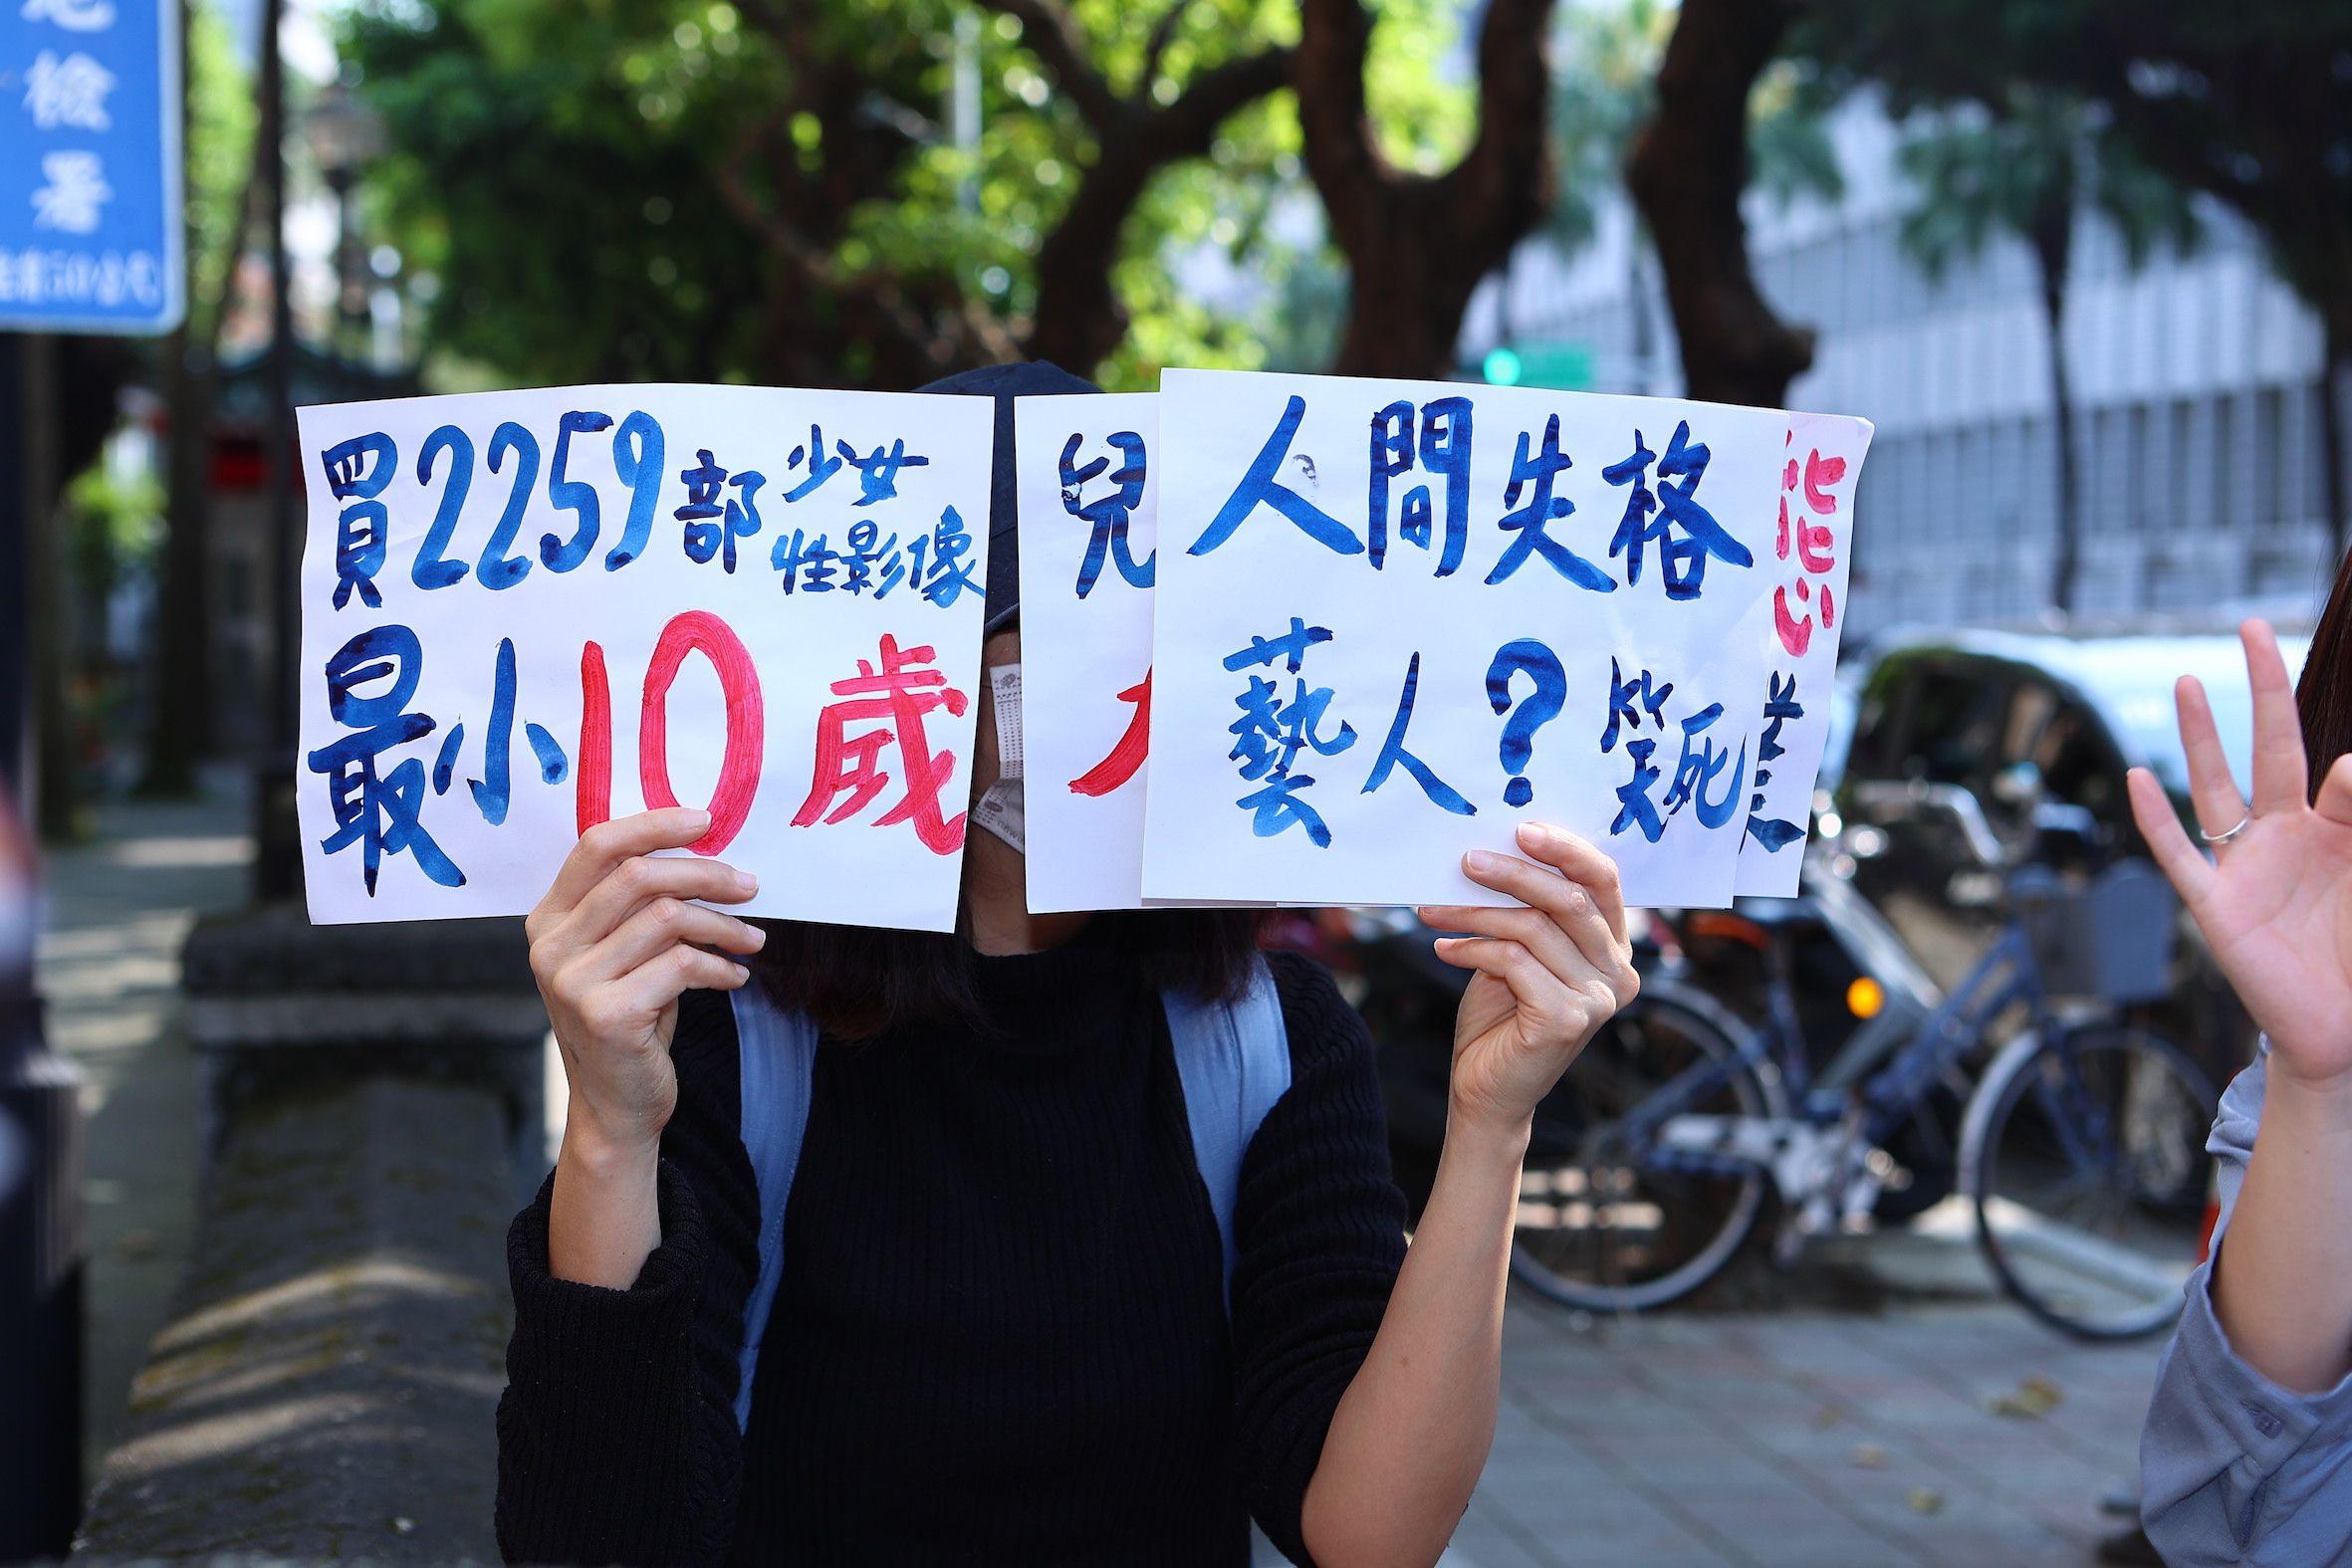 檢署
買2259部少女性影像
最小10歲
兒
人間失格
藝人？笑死
態